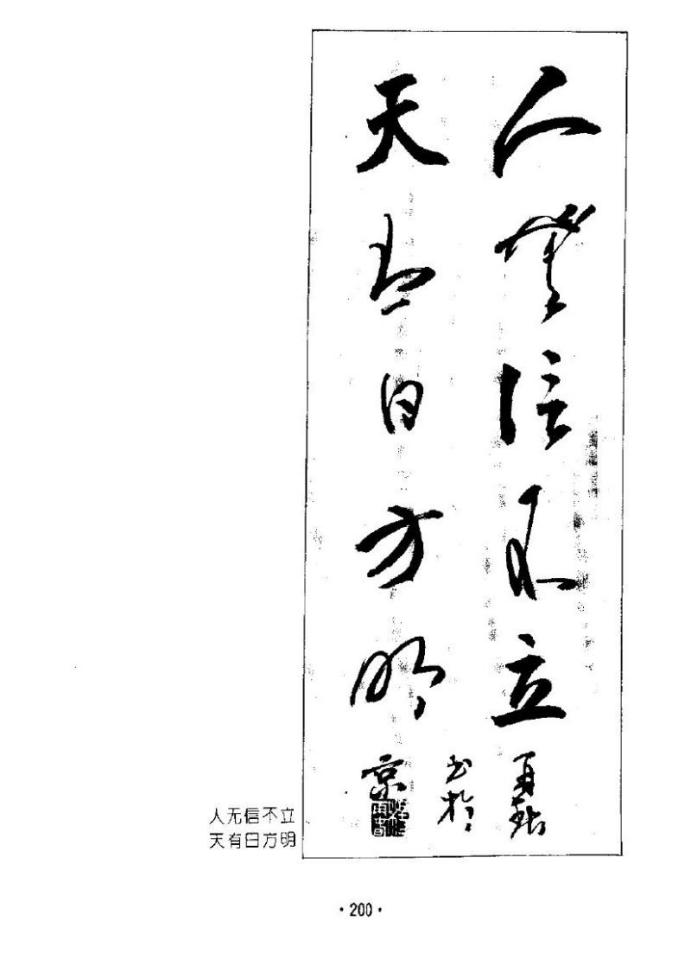 人無信不立
天有日方明
书於
京
人无信不立
天有日方明
·200·